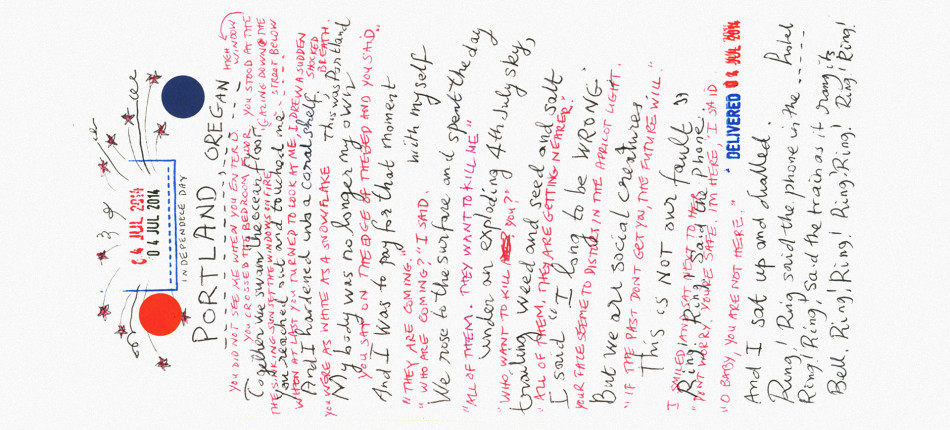 04 JUL 2014
04 JUL 2014
INDEPENDECE DAY
PORTLAND, OREGAN
HIGH
YOU DID NOT SEE ME WHEN YOU ENTERD ---- WINDOW
YOU CROSSED THE BEDROOM FLOOR YOU STOOD AT THE
Together we swam the ocean floor GAZING DOWN THE
THE SINKING SUN SET THE WINDOWS ON FIRE STREET BELOW
You reached out and touched me ----
WHEN AT LAST YOU TURNED TO LOOK AT ME. I DREW A SUDDEN
And I hardened into a coral shelf SHOCKED
YOU WERE AS WHITE AS A SNOWFLAKE BREATH.
My body was no longer my own This was Portland
YOU SAT ON THE EDGE OF THE BED AND YOU SAID..
And I was to pay for that moment
with myself
"THEY ARE COMING."
"WHO ARE COMING?" I SAID.
We rose to the surface and spent the day
"ALL OF THEM. THEY WANT TO KILL ME"
Under an exploding 4th July sky,
"WHO WANT TO KILL YOU?"
trailing weed and seed and salt
"ALL OF THEM, THEY ARE GETTING NEARER."
I said "I long to be WRONG."
YOUR FACE SEEMED TO DISTORT IN THE APRICOT LIGHT.
But we are social creatures
"IF THE PAST DON'T GET YOU, THE FUTURE WILL."
This is NOT our fault"
I SMILED AND SAT NEXT TO HER
Ring. Ring said the phone.
"DON'T WORRY. YOU'RE SAFE. I'M HERE, I SAID
"O BABY, YOU ARE NOT HERE."
DELIVERED 04 JUL 2014
And I sat up and dialled.
Ring! Ring said the phone in the hotel
Ring! Ring, Said the train as it rang its
Bell. Ring! Ring! Ring! Ring! Ring! Ring!